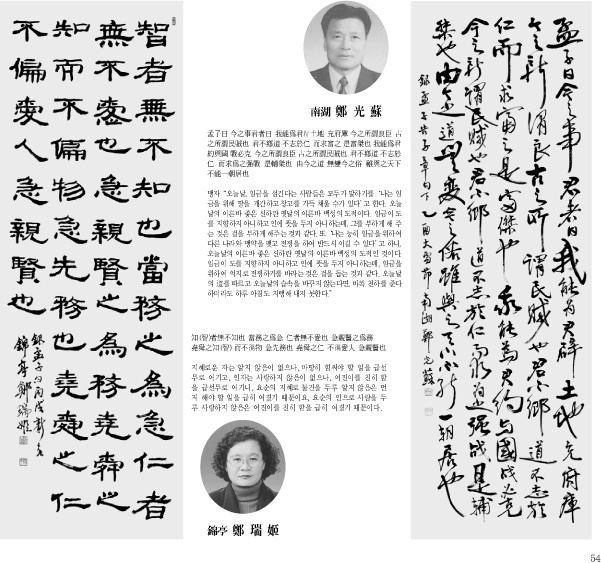 智者無不知也當務之為急仁者
無不愛也急親賢之為務堯舜之
知而不偏物急先務也堯舜之仁
不偏愛人急親賢也
錄孟子句丙戌新春
錦亭鄭瑞姬
南湖 鄭光蘇
孟子曰 今之事君者曰 我能爲君辟土地 充府庫 今之所謂良臣 古
之所謂民賊也 君不鄕道 不志於仁 而求富之 是富桀也 我能爲君
約與國 戰必克 今之所謂良臣 古之所謂民賊也 君不鄕道 不志於
仁 而求爲之强戰 是輔桀也 由今之道 無變今之俗 雖與之天下
不能一朝居也
맹자 “오늘날, 임금을 섬긴다는 사람들은 모두가 말하기를 ‘나는 임
금을 위해 땅을 개간하고 창고를 가득 채울 수가 있다’고 한다. 오늘
날의 이른바 좋은 신하란 옛날의 이른바 백성의 도적이다. 임금이 도
를 지향하지 아니하고 인에 뜻을 두지 아니하는데, 그를 부하게 해 주
는 것은 걸을 부하게 해주는 것과 같다. 또 ‘나는 능히 임금을 위하여
다른 나라와 맹약을 맺고 전쟁을 하여 반드시 이길 수 있다’고 하니,
오늘날의 이른바 좋은 신하란 옛날의 이른바 백성의 도적인 것이다.
임금이 도를 지향하지 아니하고 인에 뜻을 두지 아니하는데, 임금을
위하여 억지로 전쟁하기를 바라는 것은 걸을 돕는 것과 같다. 오늘날
의 道를 따르고 오늘날의 습속을 바꾸지 않는다면, 비록 천하를 준다
하더라도 하루 아침도 지탱해 내지 못한다.”
知(智)者無不知也 當務之爲急 仁者無不愛也 急親賢之爲務
堯舜之知(智)而不徧物 急先務也 堯舜之仁 不徧愛人 急親賢也
지혜로운 자는 알지 않음이 없으나, 마땅히 힘써야 할 일을 급선
무로 여기고, 인자는 사랑하지 않음이 없으나, 어진이를 친히 함
을 급선무로 여기니, 요순의 지혜로 물건을 두루 알지 않음은 먼
저 해야 할 일을 급히 여겼기 때문이요, 요순의 인으로 사람을 두
루 사랑하지 않음은 어진이를 친히 함을 급히 여겼기 때문이다.
錦亭 鄭瑞姬
孟子曰今之事君者曰我能為君辟土地充府庫
今之所謂良臣古之所謂民賊也君不鄉道不志於
仁而求富之是富桀也我能為君約與國戰必克
今之所謂良臣古之所謂民賊也君不鄉道不志於仁而求為之強戰是輔
桀也由今之道無變今之俗雖與之天下不能一朝居也
錄孟子告子章句下 乙酉大雪節 南湖鄭光蘇
54